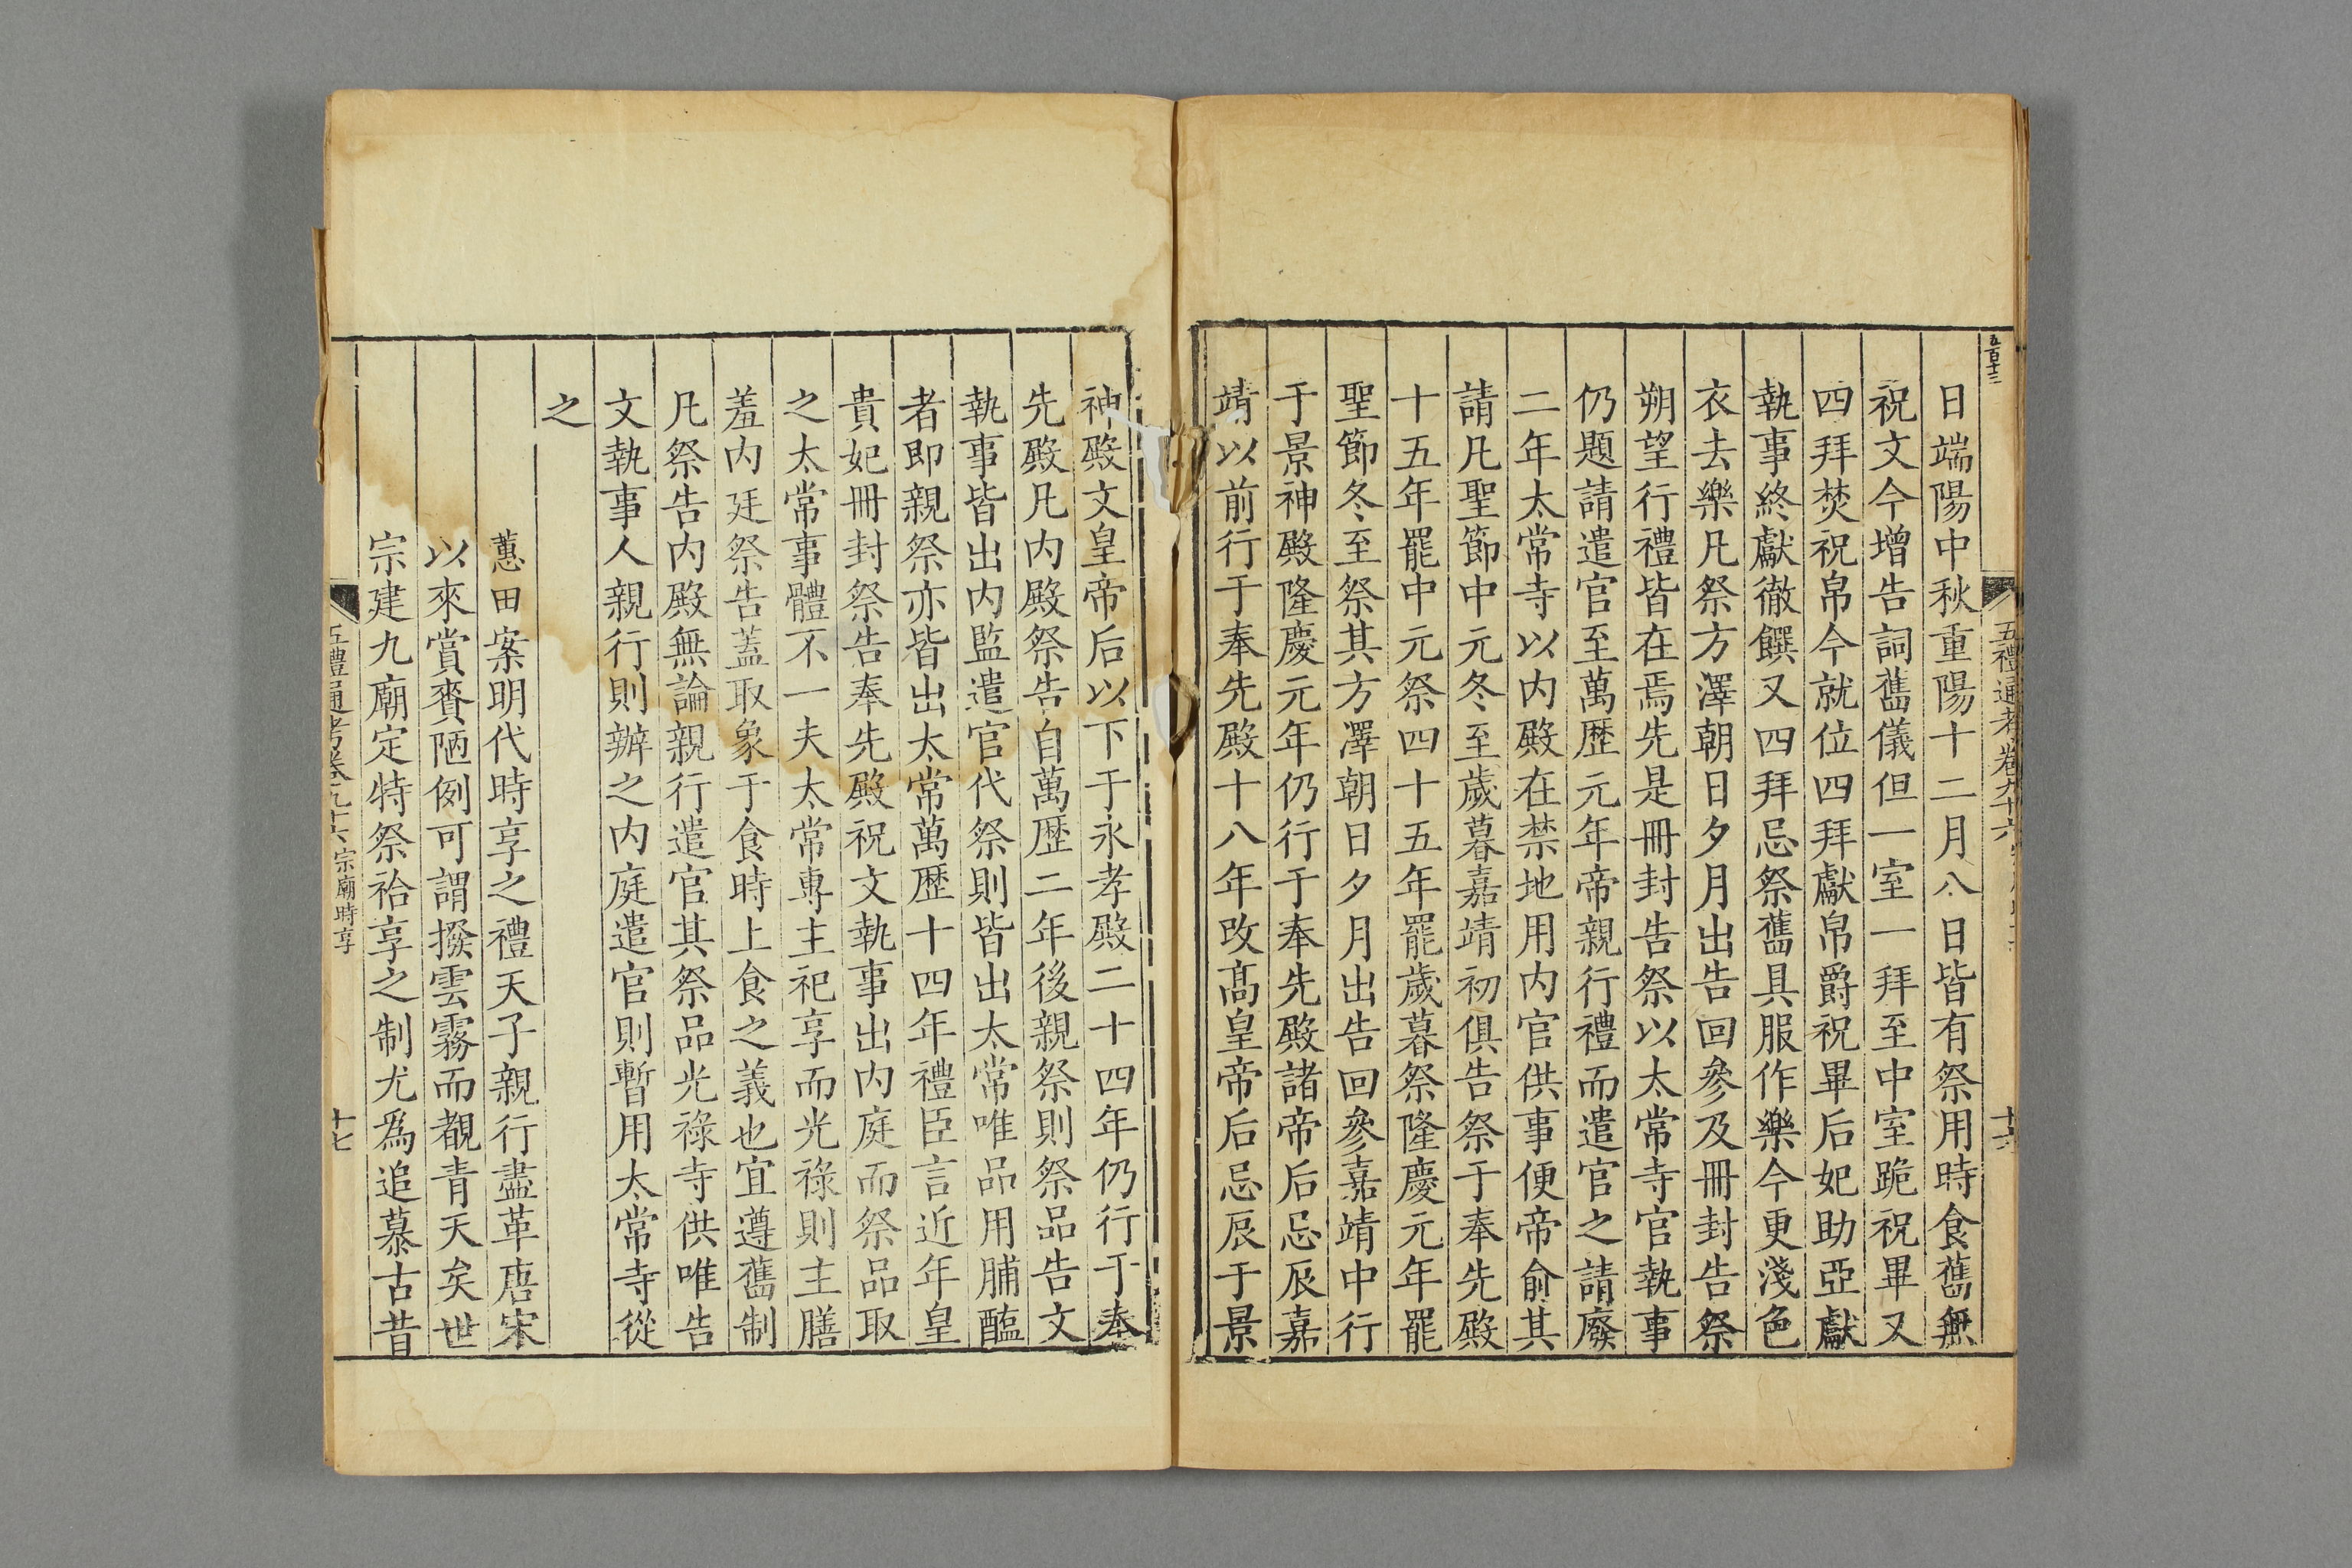 五百十三
五禮通考卷九十六
十六
日端陽中秋重陽十二月八日皆有祭用時食舊無
祝文今增告詞舊儀但一室一拜至中室跪祝畢又
四拜焚祝帛今就位四拜獻帛爵祝畢后妃助亞獻
執事終獻徹饌又四拜忌祭舊具服作樂今更淺色
衣去樂凡祭方澤朝日夕月出告回參及冊封告祭
朔望行禮皆在焉先是冊封告祭以太常寺官執事
仍題請遣官至萬歷元年帝親行禮而遣官之請廢
二年太常寺以內殿在禁地用內官供事便帝俞其
請凡聖節中元冬至歲暮嘉靖初俱告祭于奉先殿
十五年罷中元祭四十五年罷歲暮祭隆慶元年罷
聖節冬至祭其方澤朝日夕月出告回參嘉靖中行
于景神殿隆慶元年仍行于奉先殿諸帝后忌辰嘉
靖以前行于奉先殿十八年改髙皇帝后忌辰于景
神殿文皇帝后以下于永孝殿二十四年仍行于奉
先殿凡內殿祭告自萬歷二年後親祭則祭品告文
執事皆出內監遣官代祭則皆出太常唯品用脯醢
者即親祭亦皆出太常萬歷十四年禮臣言近年皇
貴妃冊封祭告奉先殿祝文執事出內庭而祭品取
之太常事體不一夫太常專主祀享而光祿則主膳
羞內廷祭告蓋取象于食時上食之義也宜遵舊制
凡祭告內殿無論親行遣官其祭品光祿寺供唯告
文執事人親行則辦之內庭遣官則暫用太常寺從
之
蕙田案明代時享之禮天子親行盡革唐宋
以來賞賚陋例可謂撥雲霧而覩青天矣世
宗建九廟定特祭祫享之制尤爲追慕古昔
五禮通考卷九十六 宗廟時享
十七